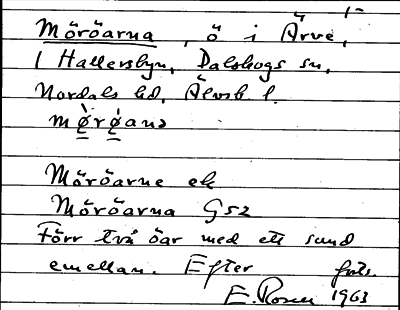 Möröarna, ö i Ärve,
i Hallersbyn, Dalskogs sn,
Nordals hd, Älvsb. l.
Möröarne ek
Möröarna G52
Förr två öar med ett sund
emellan. Efter forts.
E. Rosell 1963